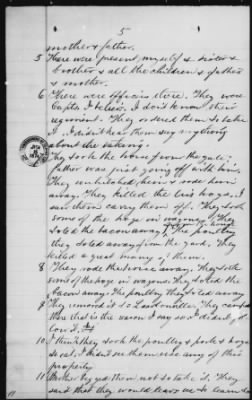 5
mother & father.
5 There were present, myself & sister &
brother & all the children & father
& mother.
6 There were officers there. They were
Capts. I believe. I don't know their
regiment. They ordered them to take
it. I didn't hear them say anything
about the taking.
7 They took the horse from the gate;
father was just going off with him.
They unhitched him & rode him
away. They killed the hogs. I
saw them carry them off. They took
some of the hogs in wagons. They
toted the bacon away. poultry
they toted away from the yard. They
killed a great many of them.
8 They rode the horse away. They took
some of the hogs in wagons. They toted the
bacon away. The poultry they toted away.
9 They removed it to They camped
there that is the reason I say so. I didn't
10 I think they took the poultry & pork & hogs
to eat. I didn't see them use any of this
property.
11 Mother begged them not to take it. They
said that they would leave us to